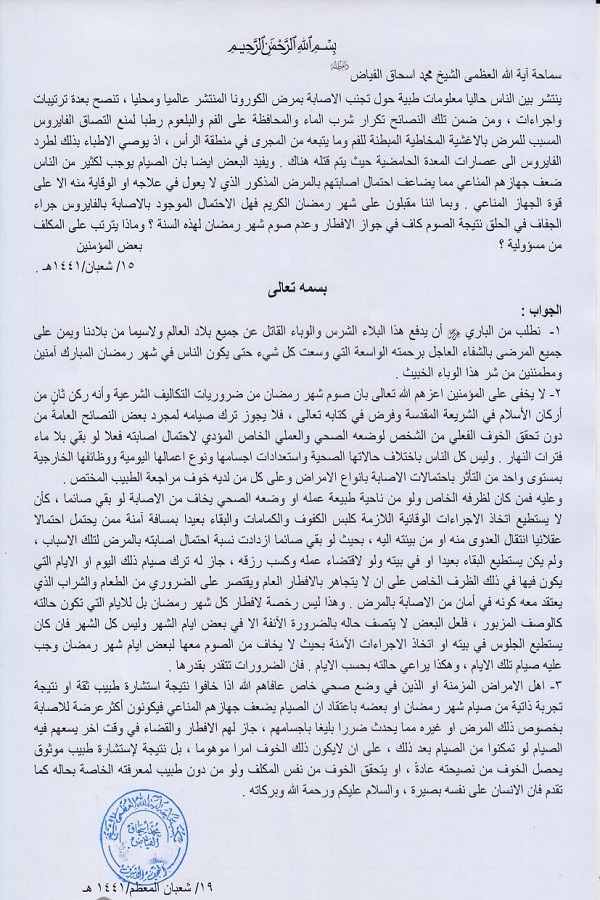 بسم الله الرحمن الرحيم
سماحة آية الله العظمى الشيخ محمد اسحاق الفياض
ينتشر بين الناس حاليا معلومات طبية حول تجنب الاصابة بمرض الكورونا المنتشر عالميا ومحليا ، تنصح بعدة ترتيبات
واجراءات ، ومن ضمن تلك النصائح تكرار شرب الماء والمحافظة على الفم والبلعوم رطبا لمنع التصاق الفايروس
المسبب للمرض بالاغشية المخاطية المبطنة للفم وما يتبعه من المجرى في منطقة الرأس ، اذ يوصي الاطباء بذلك لطرد
الفايروس الى عصارات المعدة الحامضية حيث يتم قتله هناك . ويفيد البعض ايضا بان الصيام يوجب لكثير من الناس
ضعف جهازهم المناعي مما يضاعف احتمال اصابتهم بالمرض المذكور الذي لا يعول في علاجه او الوقاية منه الا على
قوة الجهاز المناعي . وبما اننا مقبلون على شهر رمضان الكريم فهل الاحتمال الموجود بالاصابة بالفايروس جراء
الجفاف في الحلق نتيجة الصوم كاف في جواز الافطار وعدم صوم شهر رمضان لهذه السنة ؟ وماذا يترتب على المكلف
من مسؤولية ؟ بعض المؤمنين
١٥/ شعبان/١٤٤١هـ .
بسمه تعالى
الجواب :
١- نطلب من الباري أن يدفع هذا البلاء الشرس والوباء القاتل عن جميع بلاد العالم ولاسيما من بلادنا ويمن على
جميع المرضى بالشفاء العاجل برحمته الواسعة التي وسعت كل شيء حتى يكون الناس في شهر رمضان المبارك آمنين
ومطمئنين من شر هذا الوباء الخبيث .
٢- لا يخفى على المؤمنين اعزهم الله تعالى بان صوم شهر رمضان من ضروريات التكاليف الشرعية وأنه ركن ثانٍ من
أركان الأسلام في الشريعة المقدسة وفرض في كتابه تعالى ، فلا يجوز ترك صيامه لمجرد بعض النصائح العامة من
دون تحقق الخوف الفعلي من الشخص لوضعه الصحي والعملي الخاص المؤدي لاحتمال اصابته فعلا لو بقي بلا ماء
فترات النهار . وليس كل الناس باختلاف حالاتها الصحية واستعدادات اجسامها ونوع اعمالها اليومية ووظائفها الخارجية
بمستوى واحد من التأثر باحتمالات الاصابة بانواع الامراض وعلى كل من لديه خوف مراجعة الطبيب المختص .
وعليه فمن كان لظرفه الخاص ولو من ناحية طبيعة عمله او وضعه الصحي يخاف من الاصابة لو بقي صائما ، كأن
لا يستطيع اتخاذ الاجراءات الوقائية اللازمة كلبس الكفوف والكمامات والبقاء بعيدا بمسافة آمنة ممن يحتمل احتمالا
عقلائيا انتقال العدوى منه او من بيئته اليه ، بحيث لو بقي صائما ازدادت نسبة احتمال اصابته بالمرض لتلك الاسباب ،
ولم يكن يستطيع البقاء بعيدا او في بيته ولو لاقتضاء عمله وكسب رزقه ، جاز له ترك صيام ذلك اليوم او الايام التي
يكون فيها في ذلك الظرف الخاص على ان لا يتجاهر بالافطار العام ويقتصر على الضروري من الطعام والشراب الذي
يعتقد معه كونه في أمان من الاصابة بالمرض . وهذا ليس رخصة لافطار كل شهر رمضان بل للايام التي تكون حالته
كالوصف المزبور ، فلعل البعض لا يتصف حاله بالضرورة الآنفة الا في بعض ايام الشهر وليس كل الشهر فان كان
يستطيع الجلوس في بيته او اتخاذ الاجراءات الآمنة بحيث لا يخاف من الصوم معها لبعض ايام شهر رمضان وجب
عليه صيام تلك الايام ، وهكذا يراعي حالته بحسب الايام . فان الضرورات تتقدر بقدرها .
٣- اهل الامراض المزمنة او الذين في وضع صحي خاص عافاهم الله اذا خافوا نتيجة استشارة طبيب ثقة او نتيجة
تجربة ذاتية من صيام شهر رمضان او بعضه باعتقاد ان الصيام يضعف جهازهم المناعي فيكونون أكثر عرضة للاصابة
بخصوص ذلك المرض او غيره مما يحدث ضررا بليغا باجسامهم ، جاز لهم الافطار والقضاء في وقت اخر يسعهم فيه
الصيام لو تمكنوا من الصيام بعد ذلك ، على ان لايكون ذلك الخوف امرا موهوما ، بل نتيجة لإستشارة طبيب موثوق
يحصل الخوف من نصيحته عادةً ، او يتحقق الخوف من نفس المكلف ولو من دون طبيب لمعرفته الخاصة بحاله كما
تقدم فان الانسان على نفسه بصيرة ، والسلام عليكم ورحمة الله وبركاته .
محمد اسحاق
الفياض
١٩/ شعبان المعظم/١٤٤١ هـ